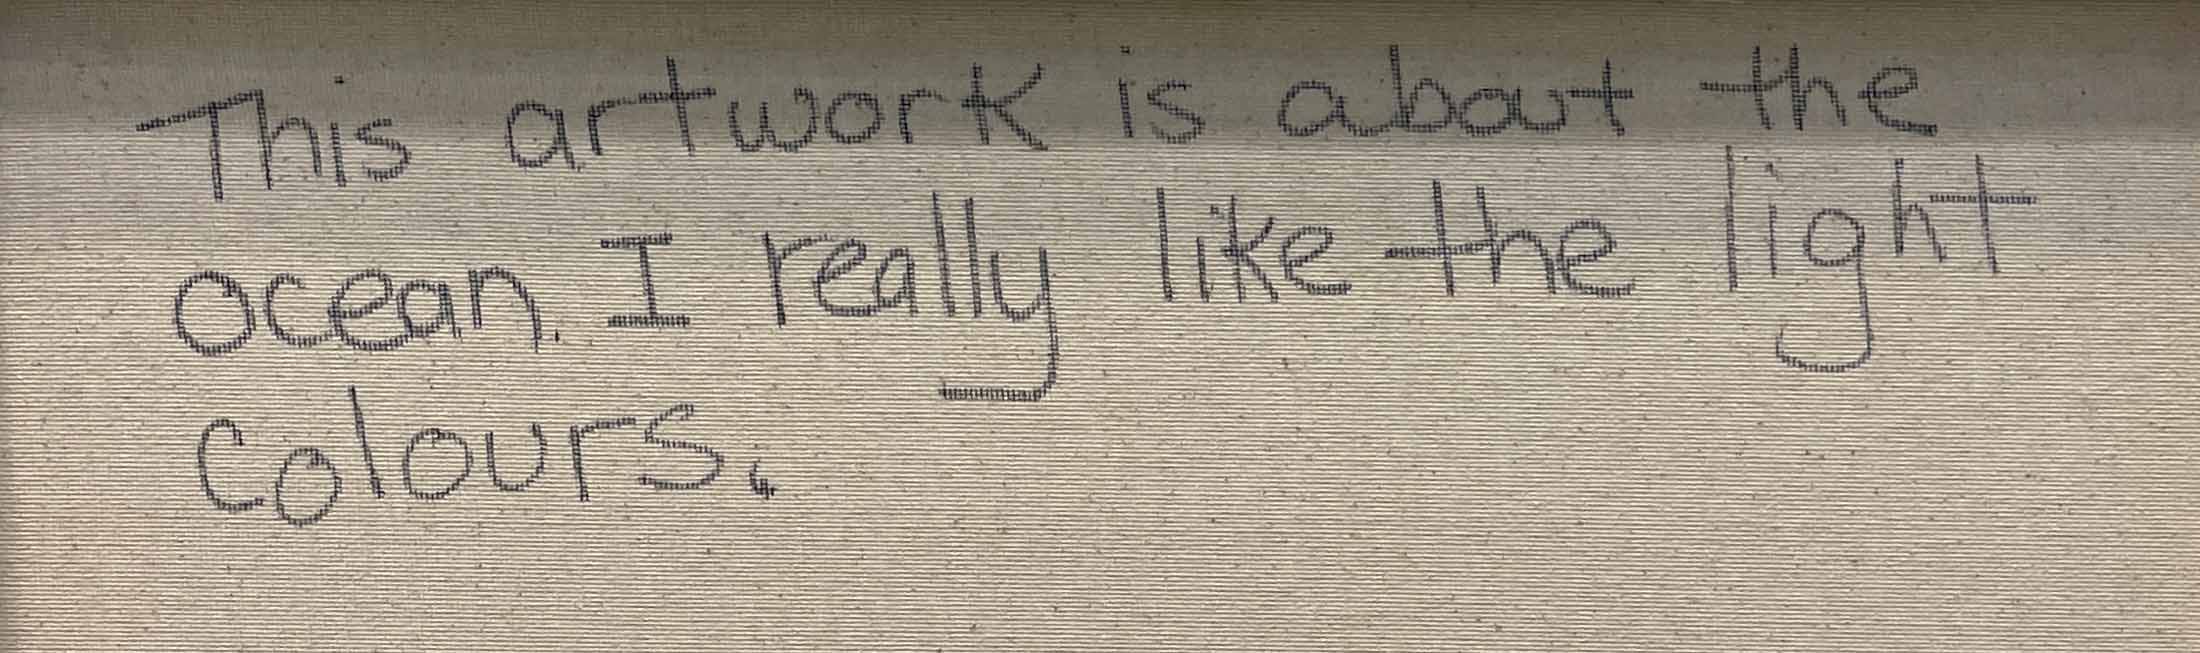 This artwork is about the
ocean. I really like the light
colours.